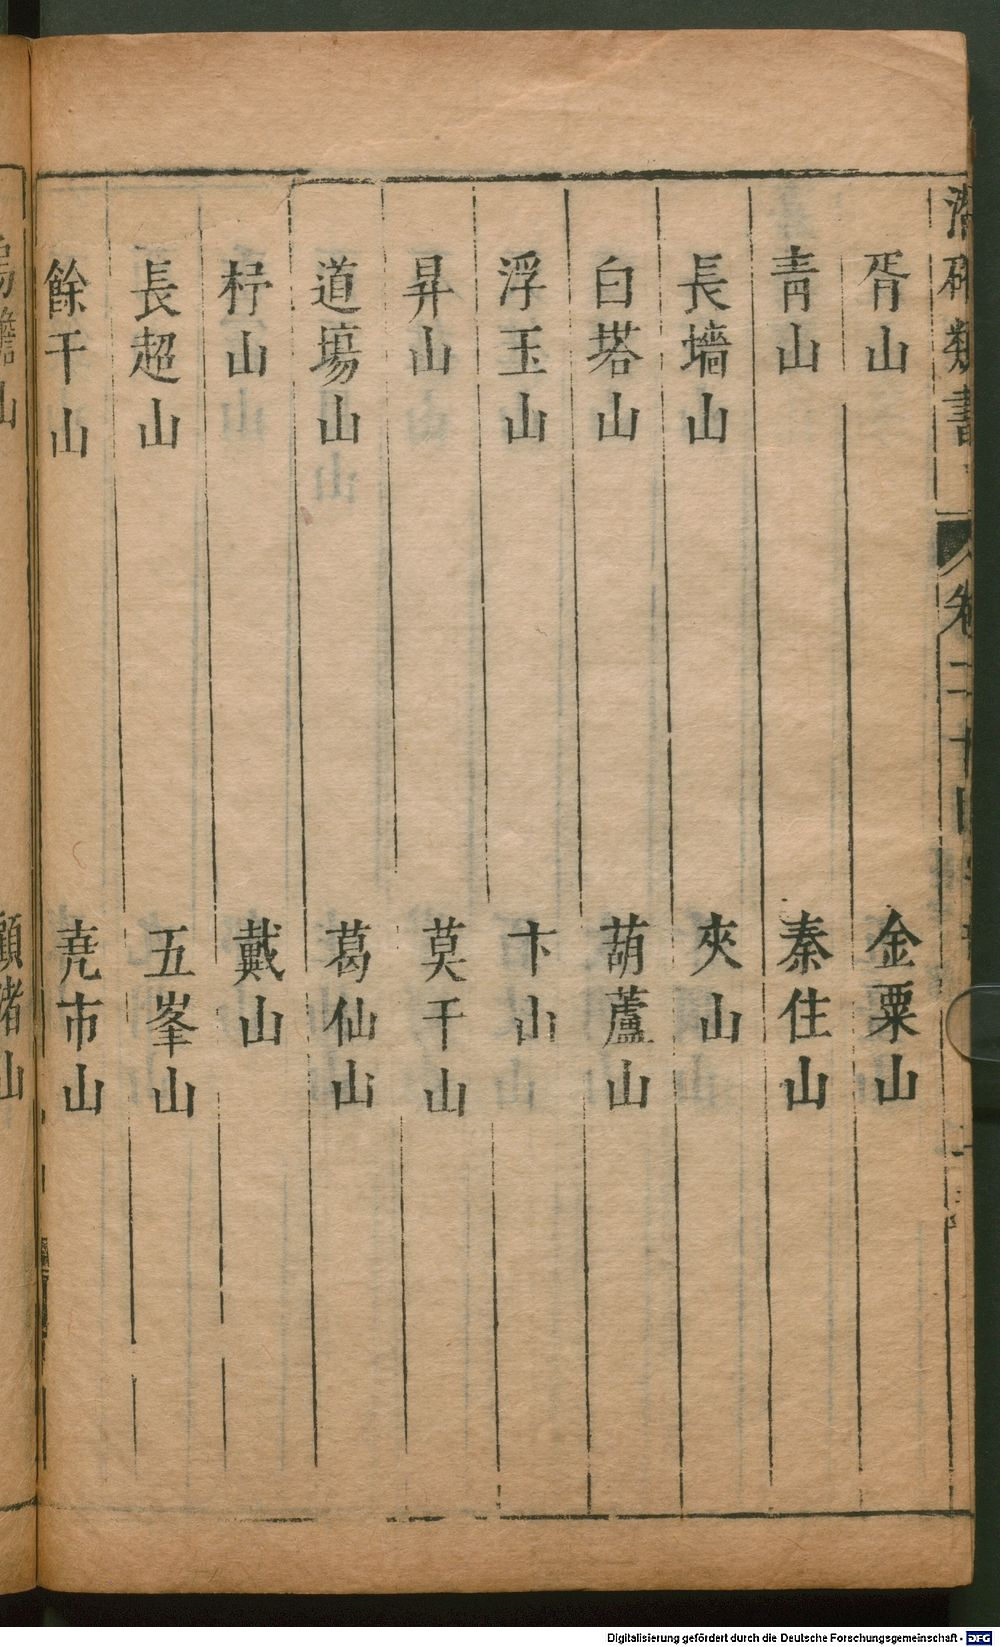 類書
卷二十
胥山 金粟山
青山 秦住山
長墻山 夾山
白塔山 葫蘆山
浮玉山 卞山
昇山 莫干山
道場山 葛仙山
杼山 戴山
長超山 五峯山
餘干山 堯市山
山 顧渚山
Digitalisierung gefördert durch die Deutsche Forschungsgemeinschaft - DFG